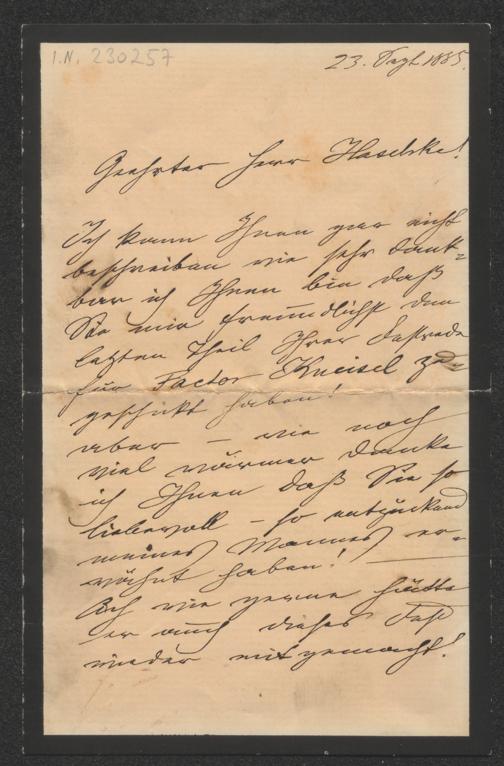 I.N. 230257
23. Sept 1885.
Geehrter Herr
Ich kann Ihnen gar nicht
beschreiben wie sehr dank-
bar ich Ihnen bin daß
Sie mir freundlichst den
letzten Theil Ihrer Festrede
für Factor Kneisel zu-
geschickt haben!
aber – wie noch
viel wärmer danke
ich Ihnen daß Sie so
liebevoll – so entzückend
meines Mannes er-
wähnt haben! —
Ach wie gerne hätte
er auch dieses Fest
wieder mitgemacht!